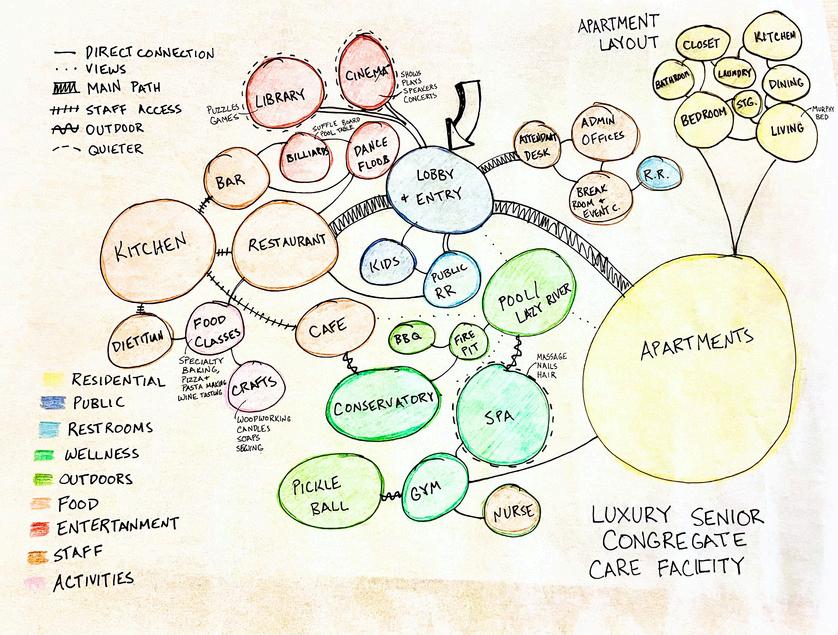 DIRECT CONNECTION
VIEWS
MAIN PATH
STAFF ACCESS
OUTDOOR
QUIETER
APARTMENT
LAYOUT
CLOSET
KITCHEN
BATHROOM
LAUNDRY
DINING
STG.
BEDROOM
LIVING
MURPHY
BED
LIBRARY
PUZZLES
GAMES
CINEMA
SHOWS
PLAYS
SPEAKERS
CONCERTS
SUFFLE BOARD
POOL TABLE
BILLIARDS
DANCE
FLOOR
BAR
LOBBY
+ ENTRY
ATTENDANT
DESK
ADMIN
OFFICES
BREAK
ROOM +
EVENT C.
R.R.
KITCHEN
RESTAURANT
KIDS
PUBLIC
RR
POOL/
LAZY RIVER
APARTMENTS
DIETITIAN
FOOD
CLASSES
SPECIALTY
BAKING,
PIZZA +
PASTA MAKING
WINE TASTING
CAFE
BBQ
FIRE
PIT
CRAFTS
WOODWORKING
CANDLES
SOAPS
SEWING
CONSERVATORY
SPA
MASSAGE
NAILS
HAIR
PICKLE
BALL
GYM
NURSE
RESIDENTIAL
PUBLIC
RESTROOMS
WELLNESS
OUTDOORS
FOOD
ENTERTANMENT
STAFF
ACTIVITIES
LUXURY SENIOR
CONGREGATE
CARE FACILITY